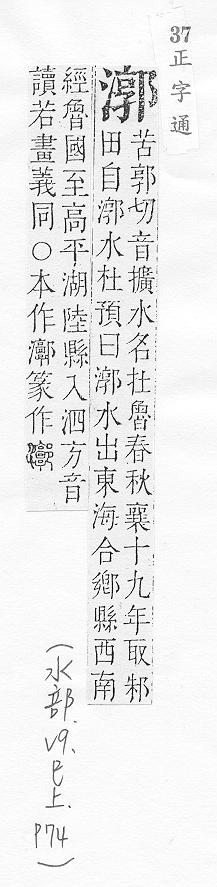 37
正字通
漷
苦郭切音擴水名在魯春秋襄十九年取邾
田自漷水杜預曰漷水出東海合鄉縣西南
經魯國至高平湖陸縣入泗方音
讀若畫義同○本作漷篆作
(水部.V9.巳上.P74)